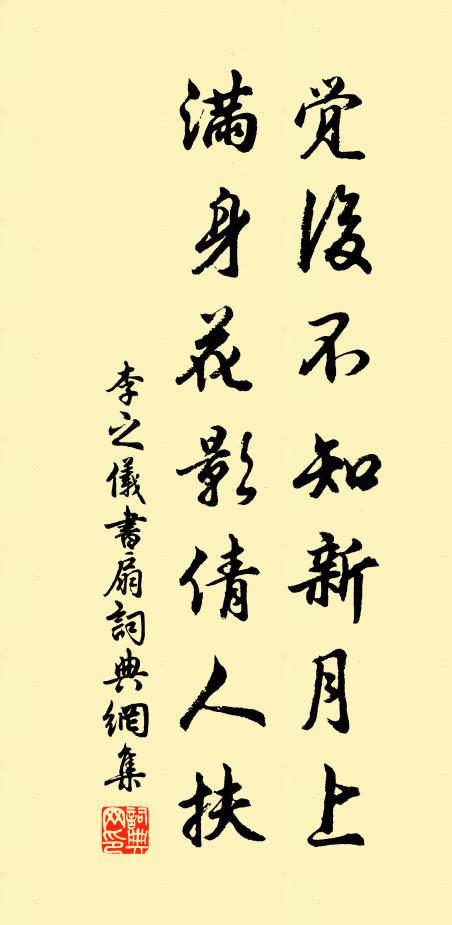 覺後不知新月上
滿身花影倩人扶
李之儀書扇詞典網集
詞典網印